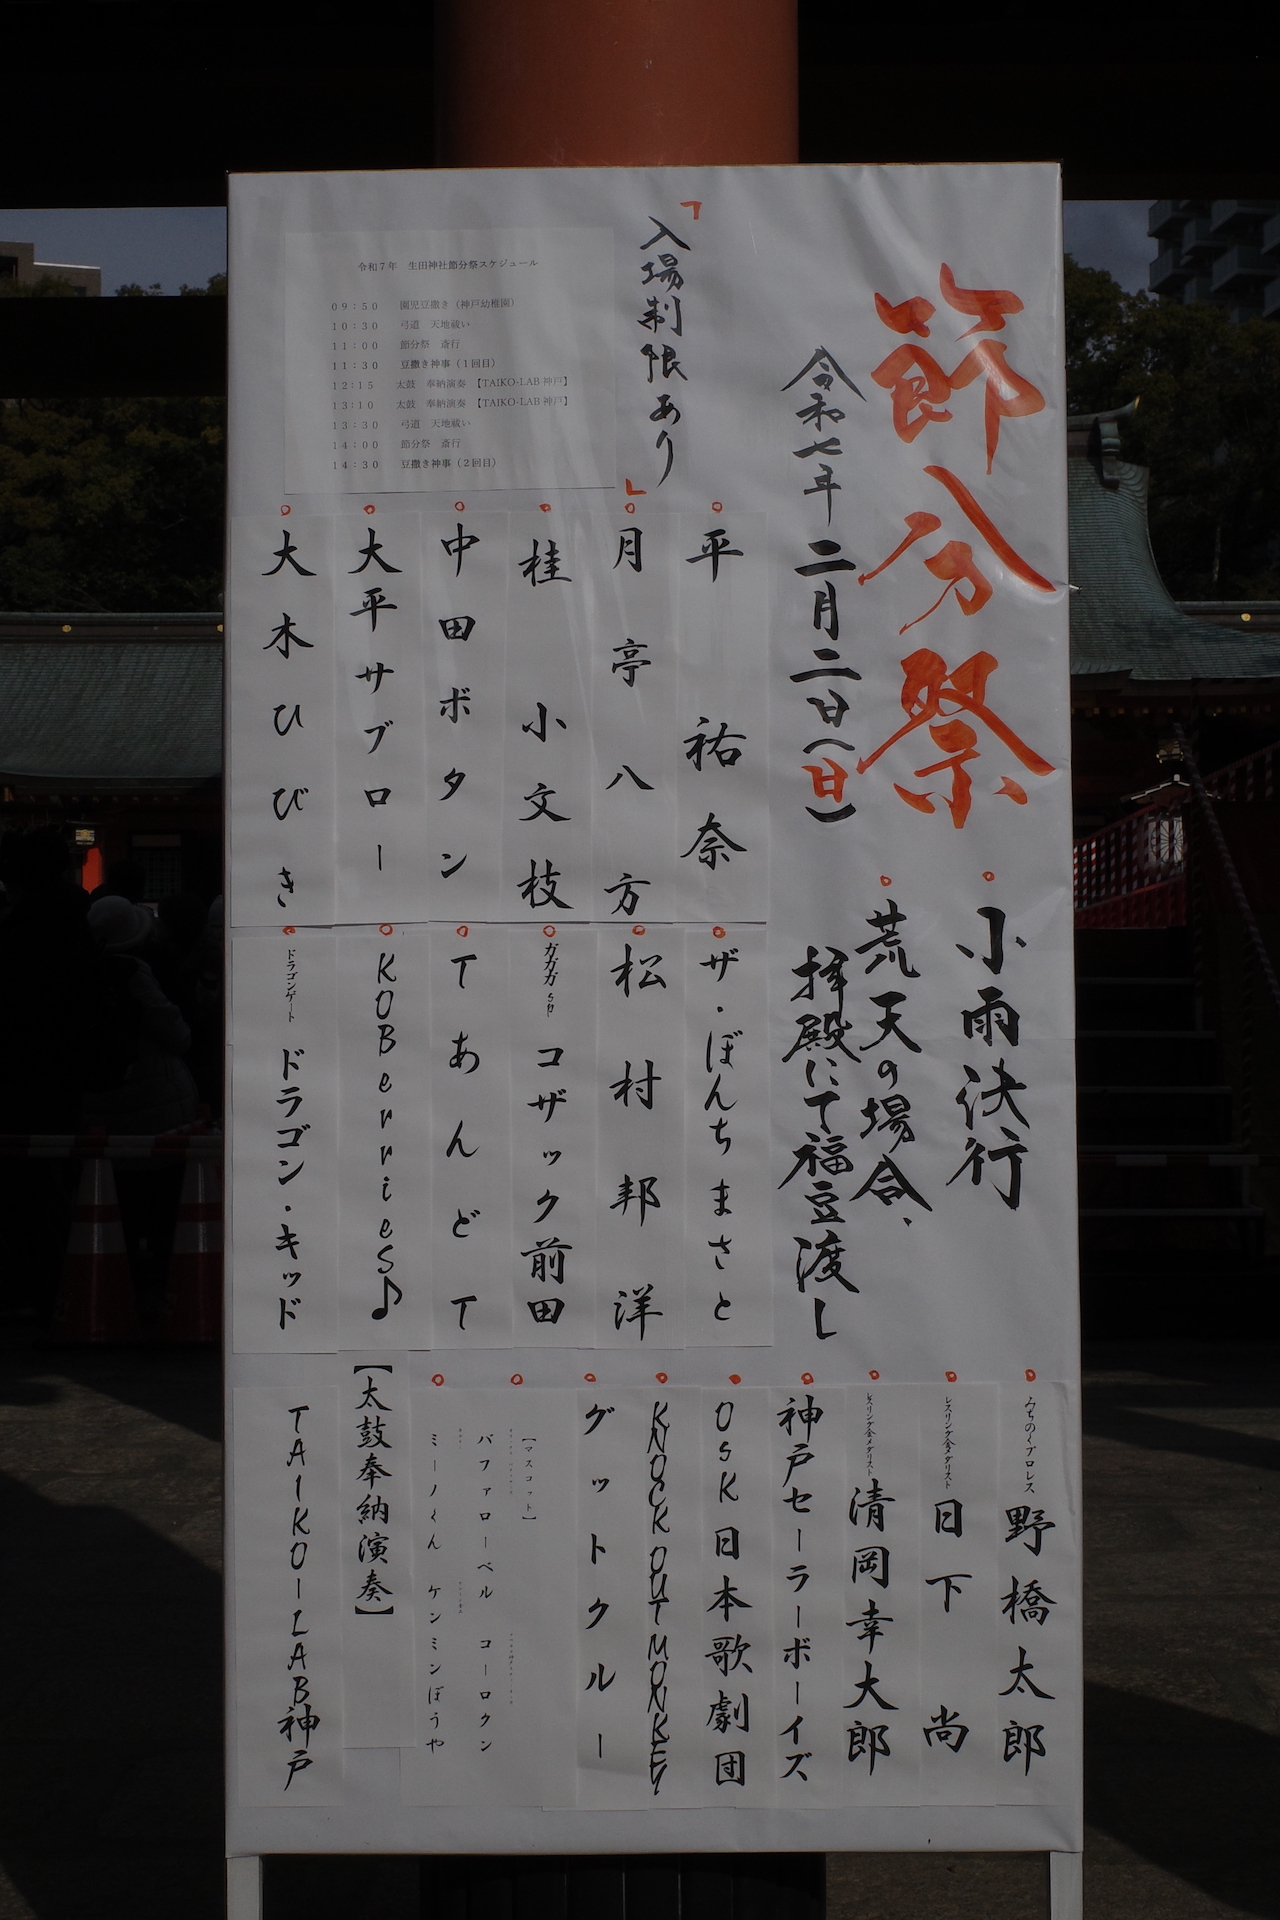 節分祭
令和七年 二月二日(日)
・小雨決行
・荒天の場合、
拝殿にて福豆渡し
「入場制限あり」
令和7年 生田神社節分祭スケジュール
09:50 園児豆撒き(神戸幼稚園)
10:30 弓道 天地祓い
11:00 節分祭 斎行
11:30 豆撒き神事(1回目)
12:15 太鼓 奉納演奏 【TAIKO-LAB神戸】
13:10 太鼓 奉納演奏 【TAIKO-LAB神戸】
13:30 弓道 天地祓い
14:00 節分祭 斎行
14:30 豆撒き神事(2回目)
平 祐奈
月亭八方
桂 小文枝
中田ボタン
大平サブロー
大木ひびき
ザ・ぼんちまさと
松村邦洋
ガガガSP コザック前田
TあんどT
KOBerrieS♪
ドラゴンゲート ドラゴン・キッド
みちのくプロレス 野橋太郎
レスリング金メダリスト 日下 尚
レスリング金メダリスト 清岡幸大郎
神戸セーラーボーイズ
OSK日本歌劇団
KNOCK OUT MONKEY
グットクルー
【マスコット】
バファローベル コーロクン
ミーノくん ケンミンぼうや
【太鼓奉納演奏】
TAIKO-LAB神戸